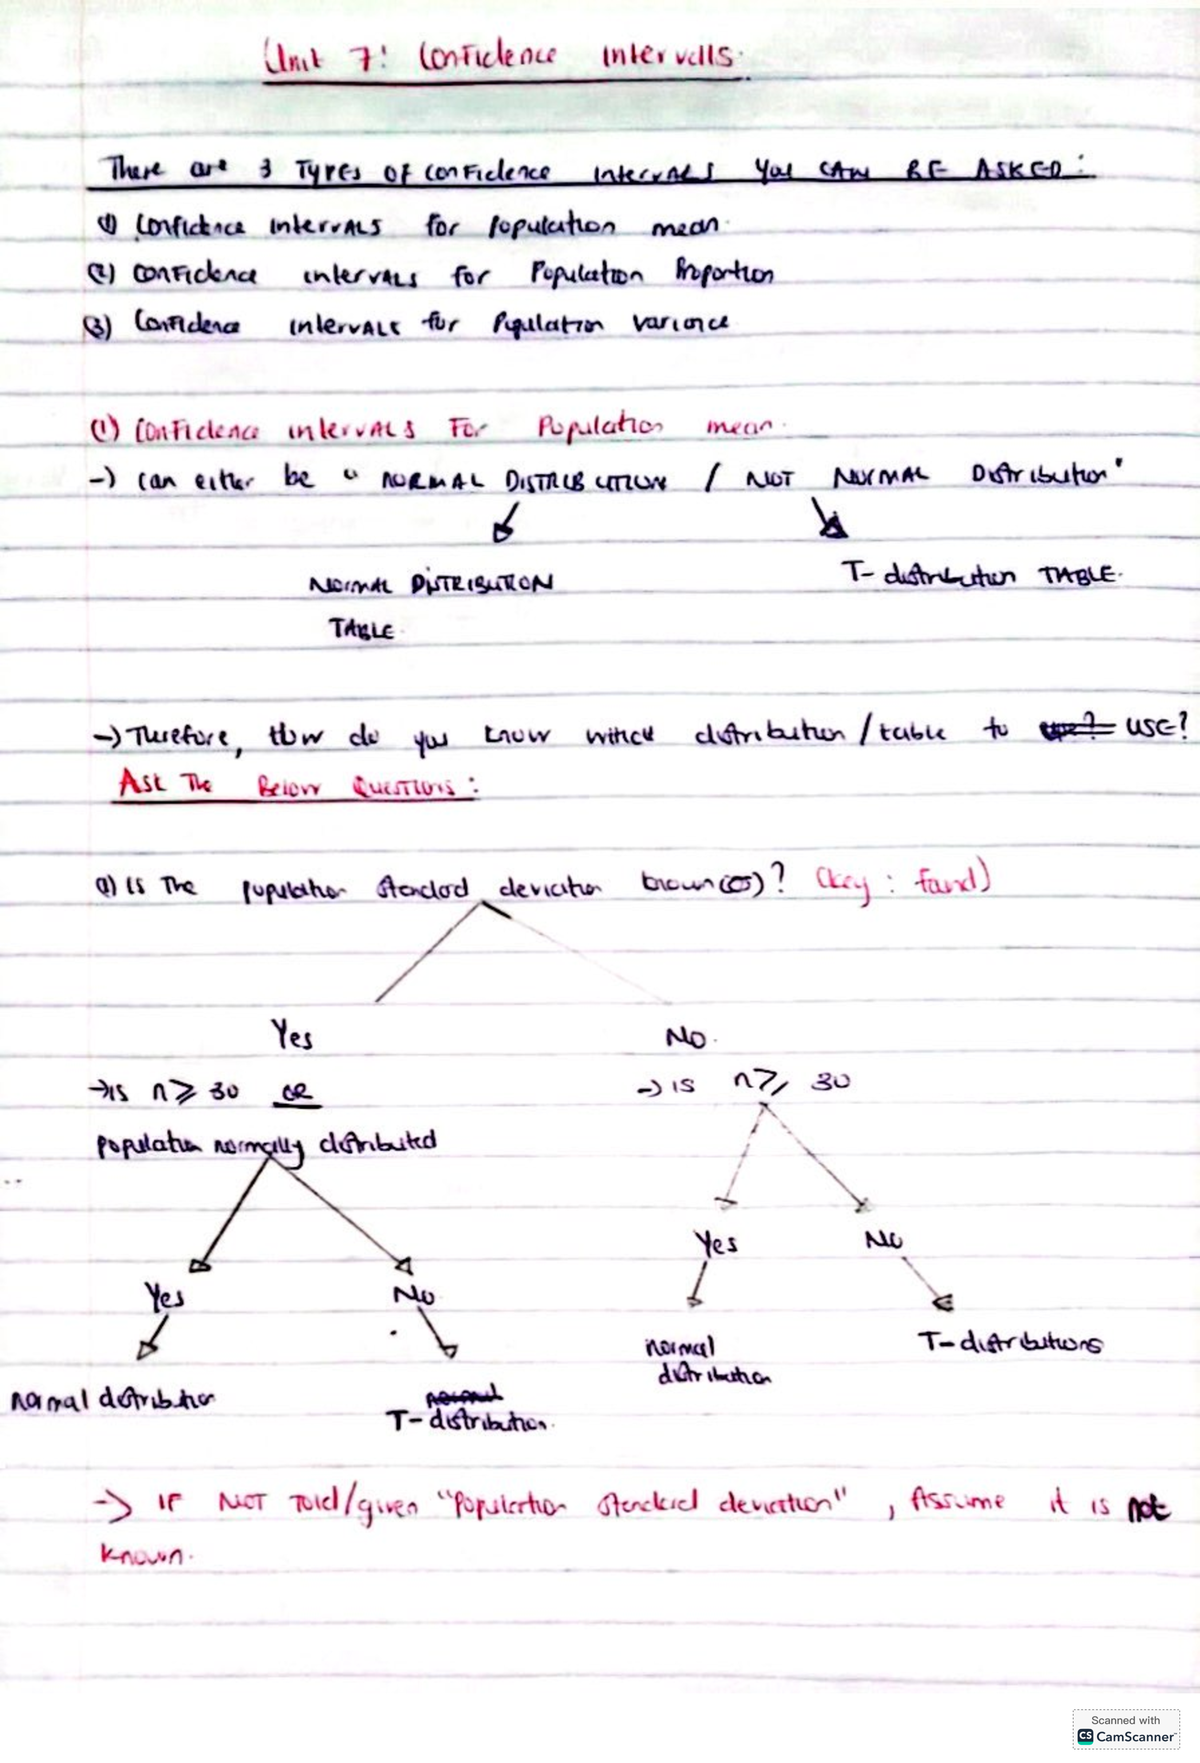 Unit 7: Confidence Intervals.
There are 3 Types of confidence intervals you CAN BE ASKED:
(1) Confidence intervals for population mean.
(2) Confidence intervals for Population Proportion
(3) Confidence intervals for Population variance
(1) Confidence intervals For Population mean.
→ can either be " NORMAL DISTRIBUTION / NOT NORMAL Distribution"
NORMAL DISTRIBUTION
TABLE.
T- distribution TABLE.
→ Therefore, How do you know which distribution / table to use? USE?
Ask The Below Questions:
a) Is The population standard deviation known(σ)? (key: found)
Yes
No.
→ is n ≥ 30 OR
population normally distributed
→ is n ≥ 30
Yes
No
Yes
No
normal distribution
normal
T- distribution.
normal
distribution
T- distributions
→ IF NOT Told/given "Population standard deviation", Assume it is not
known.
Scanned with
CS CamScanner